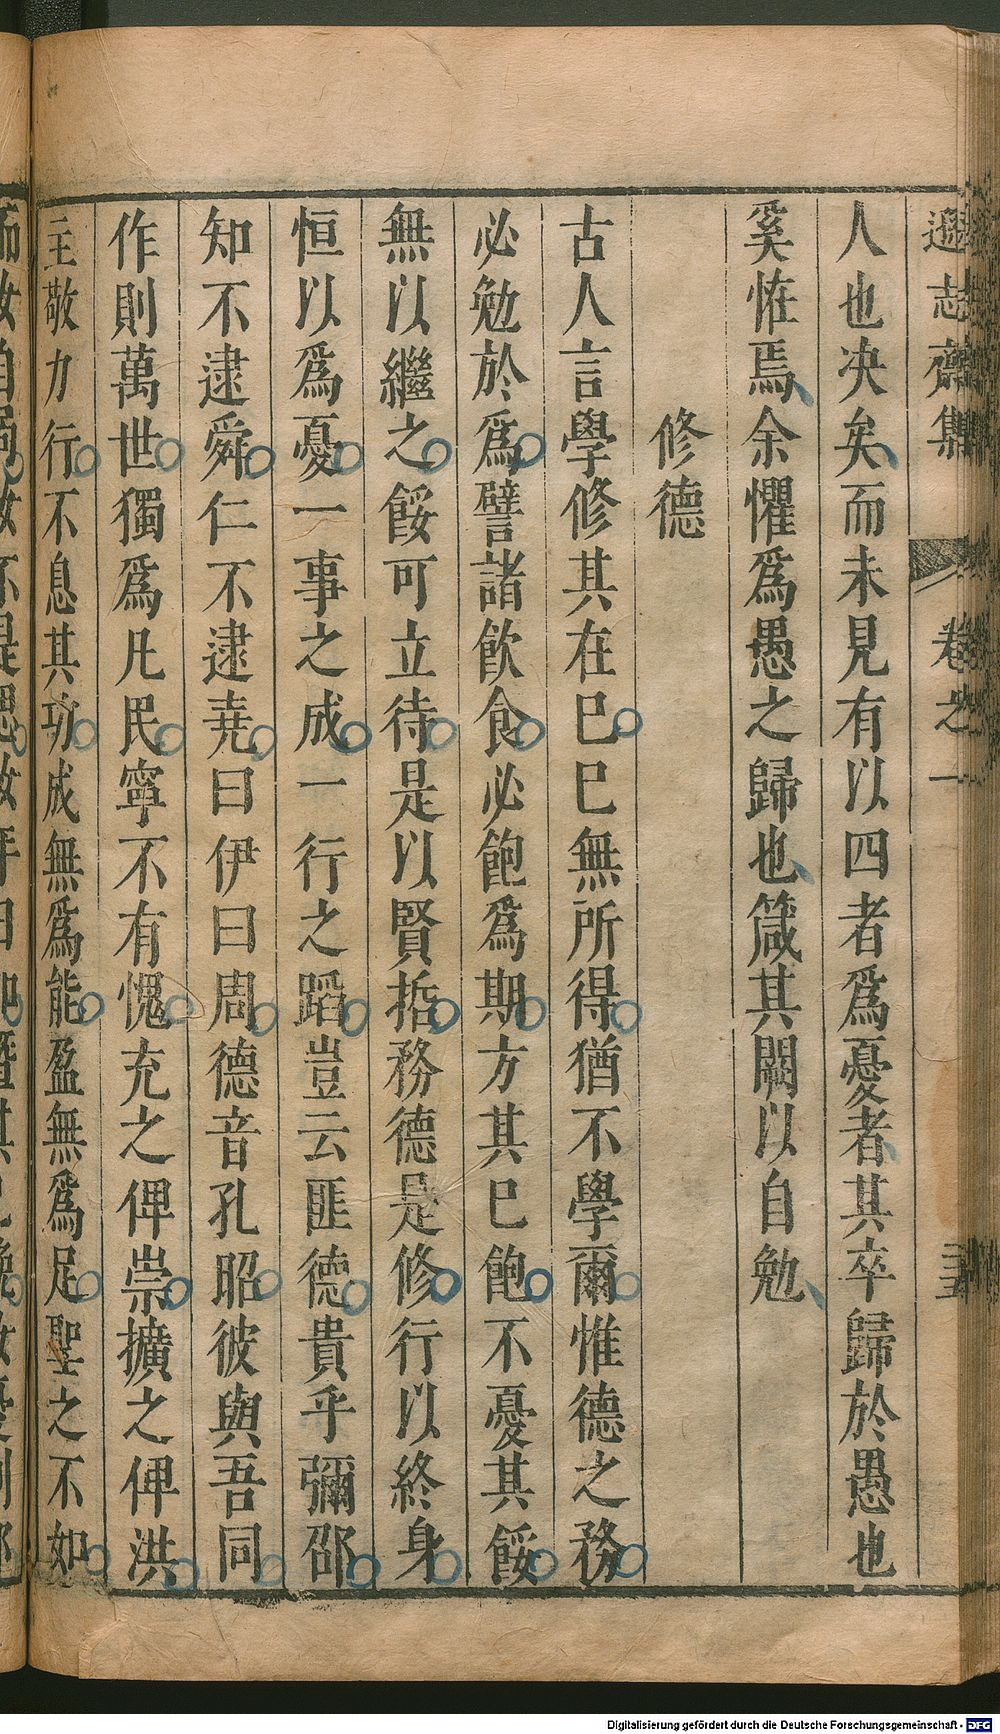 遜志齋集 卷之一
人也决矣而未見有以四者爲憂者其卒歸於愚也
奚恠焉余懼爲愚之歸也箴其闕以自勉
修德
古人言學修其在巳巳無所得猶不學爾惟德之務
必勉於爲譬諸飲食必飽爲期方其巳飽不憂其餒
無以繼之餒可立待是以賢哲務德是修行以終身
恒以爲憂一事之成一行之蹈豈云匪德貴乎彌邵
知不逮舜仁不逮堯曰伊曰周德音孔昭彼與吾同
作則萬世獨爲凡民寧不有愧充之俾崇擴之俾洪
主敬力行不息其功成無爲能盈無爲足聖之不如
Digitalisierung gefördert durch die Deutsche Forschungsgemeinschaft - DFG